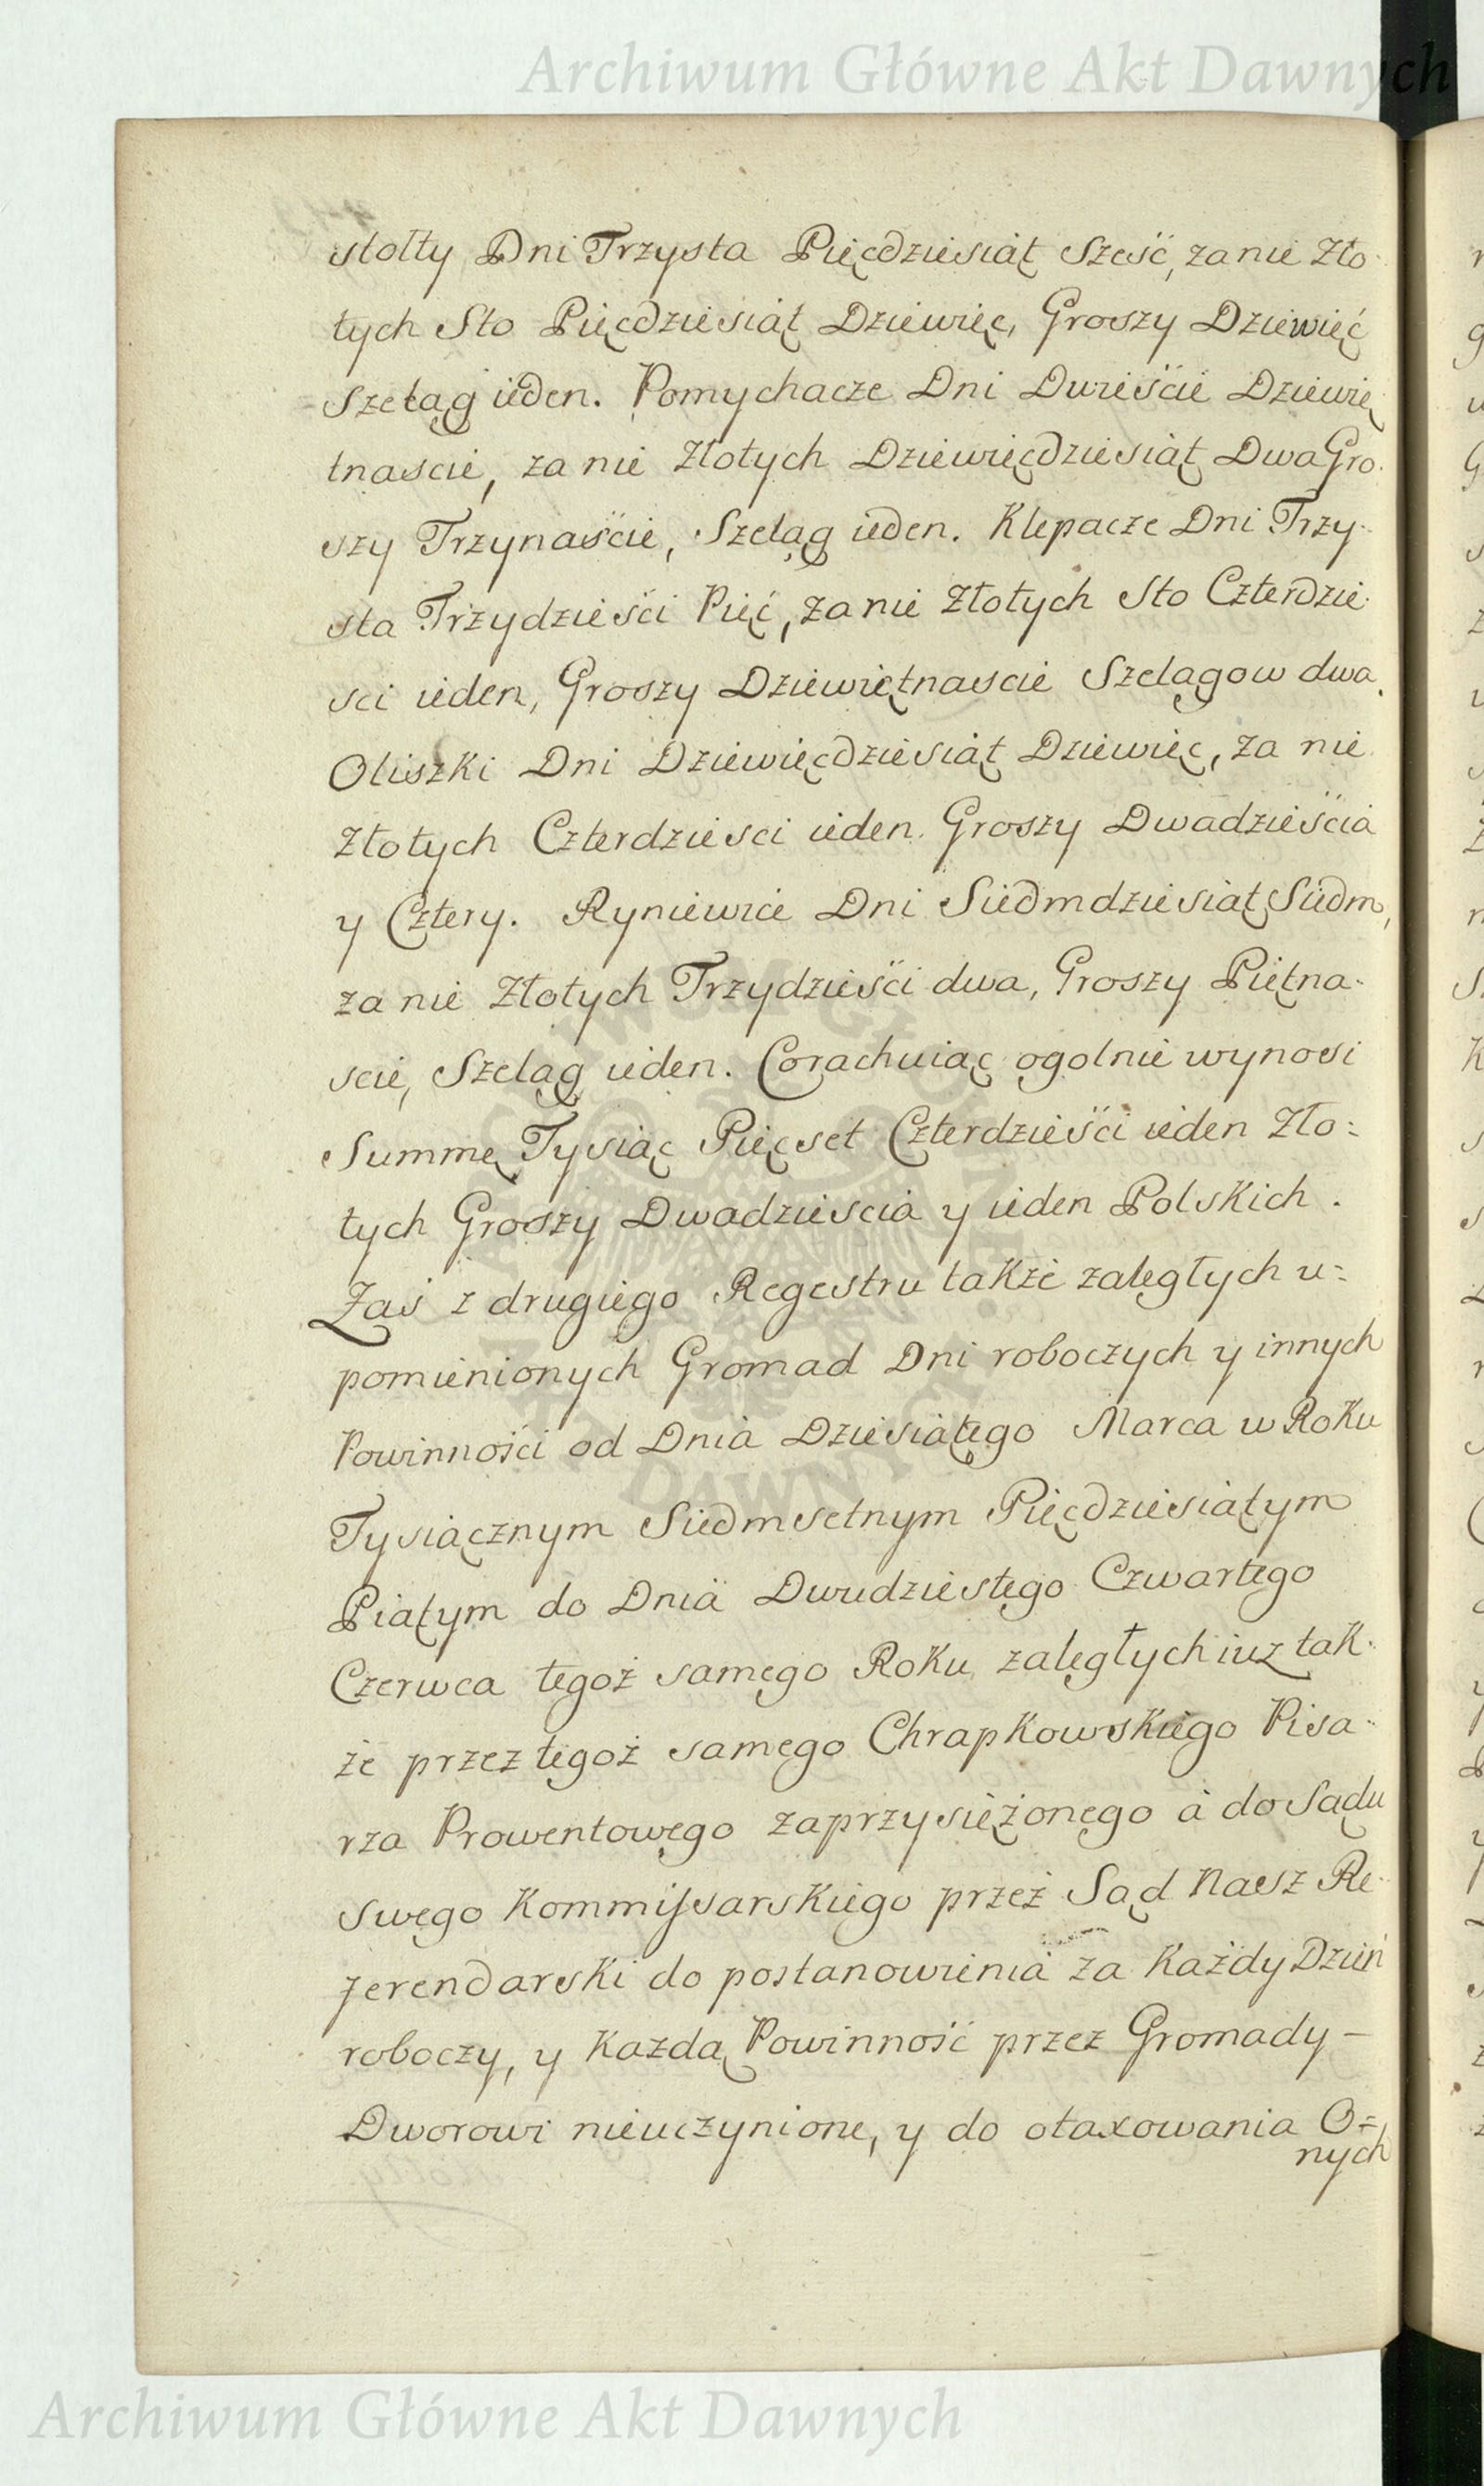 Archiwum Główne Akt Dawnych
stołty Dni Trzysta Pięćdziesiąt Sześć, za nie Zło-
tych Sto Pięćdziesiąt Dziewięc, Groszy Dziewięć
Szeląg ieden. Pomychacze Dni Dwieście Dziewię
tnascie, za nie Złotych Dziewięćdziesiąt Dwa Gro-
szy Trzynaście, Szeląg ieden. Klepacze Dni Trzy-
sta Trzydzieści Pięć, za nie Złotych Sto Czterdzie-
sci ieden, Groszy Dziewiętnascie Szelągow dwa.
Oliszki Dni Dziewięćdziesiąt Dziewięc, za nie
Złotych Czterdziesci ieden. Groszy Dwadzieścia
y Cztery. Ryniewice Dni Siedmdziesiąt Siedm,
za nie Złotych Trzydzieści dwa, Groszy Piętna-
scie, Szeląg ieden. Corachuiąc ogolnie wynosi
Summę Tysiąc Pięcset Czterdzieści ieden Zło=
tych Groszy Dwadziescia y ieden Polskich.
Zaś z drugiego Regestru także zaległych u=
pomienionych Gromad Dni roboczych y innych
Powinności od Dnia Dziesiątego Marca w Roku
Tysiącznym Siedmsetnym Pięćdziesiątym
Piątym do Dnia Dwudziestego Czwartego
Czerwca tegoż samego Roku zaległych iuz tak-
że przez tegoż samego Chrapkowskiego Pisa-
rza Prowentowego zaprzysiężonego a do Sądu
swego Kommissarskiego przez Sąd Nasz Re-
ferendarski do postanowienia za każdy Dzień
roboczy, y każdą Powinność przez Gromady –
Dworowi nieuczynione, y do otaxowania O=
nych
Archiwum Główne Akt Dawnych